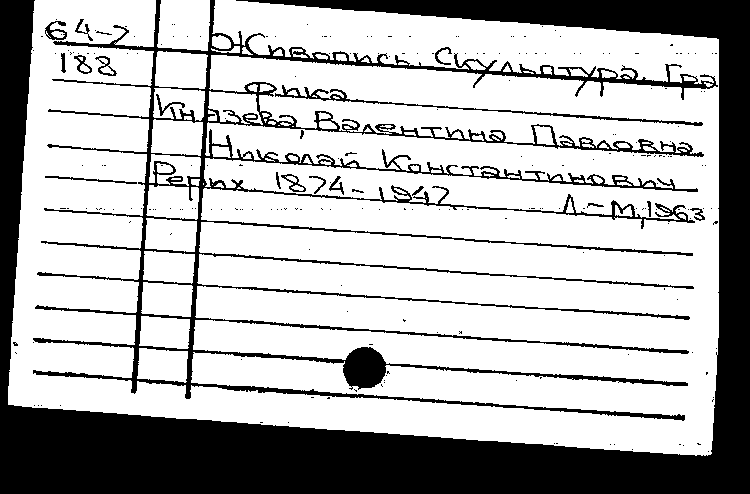 64-7
188
Живопись. Скульптура. Гра
фика
Князева, Валентина Павловна
Николай Константинович
Рерих. 1874-1947
Л.-М, 1963